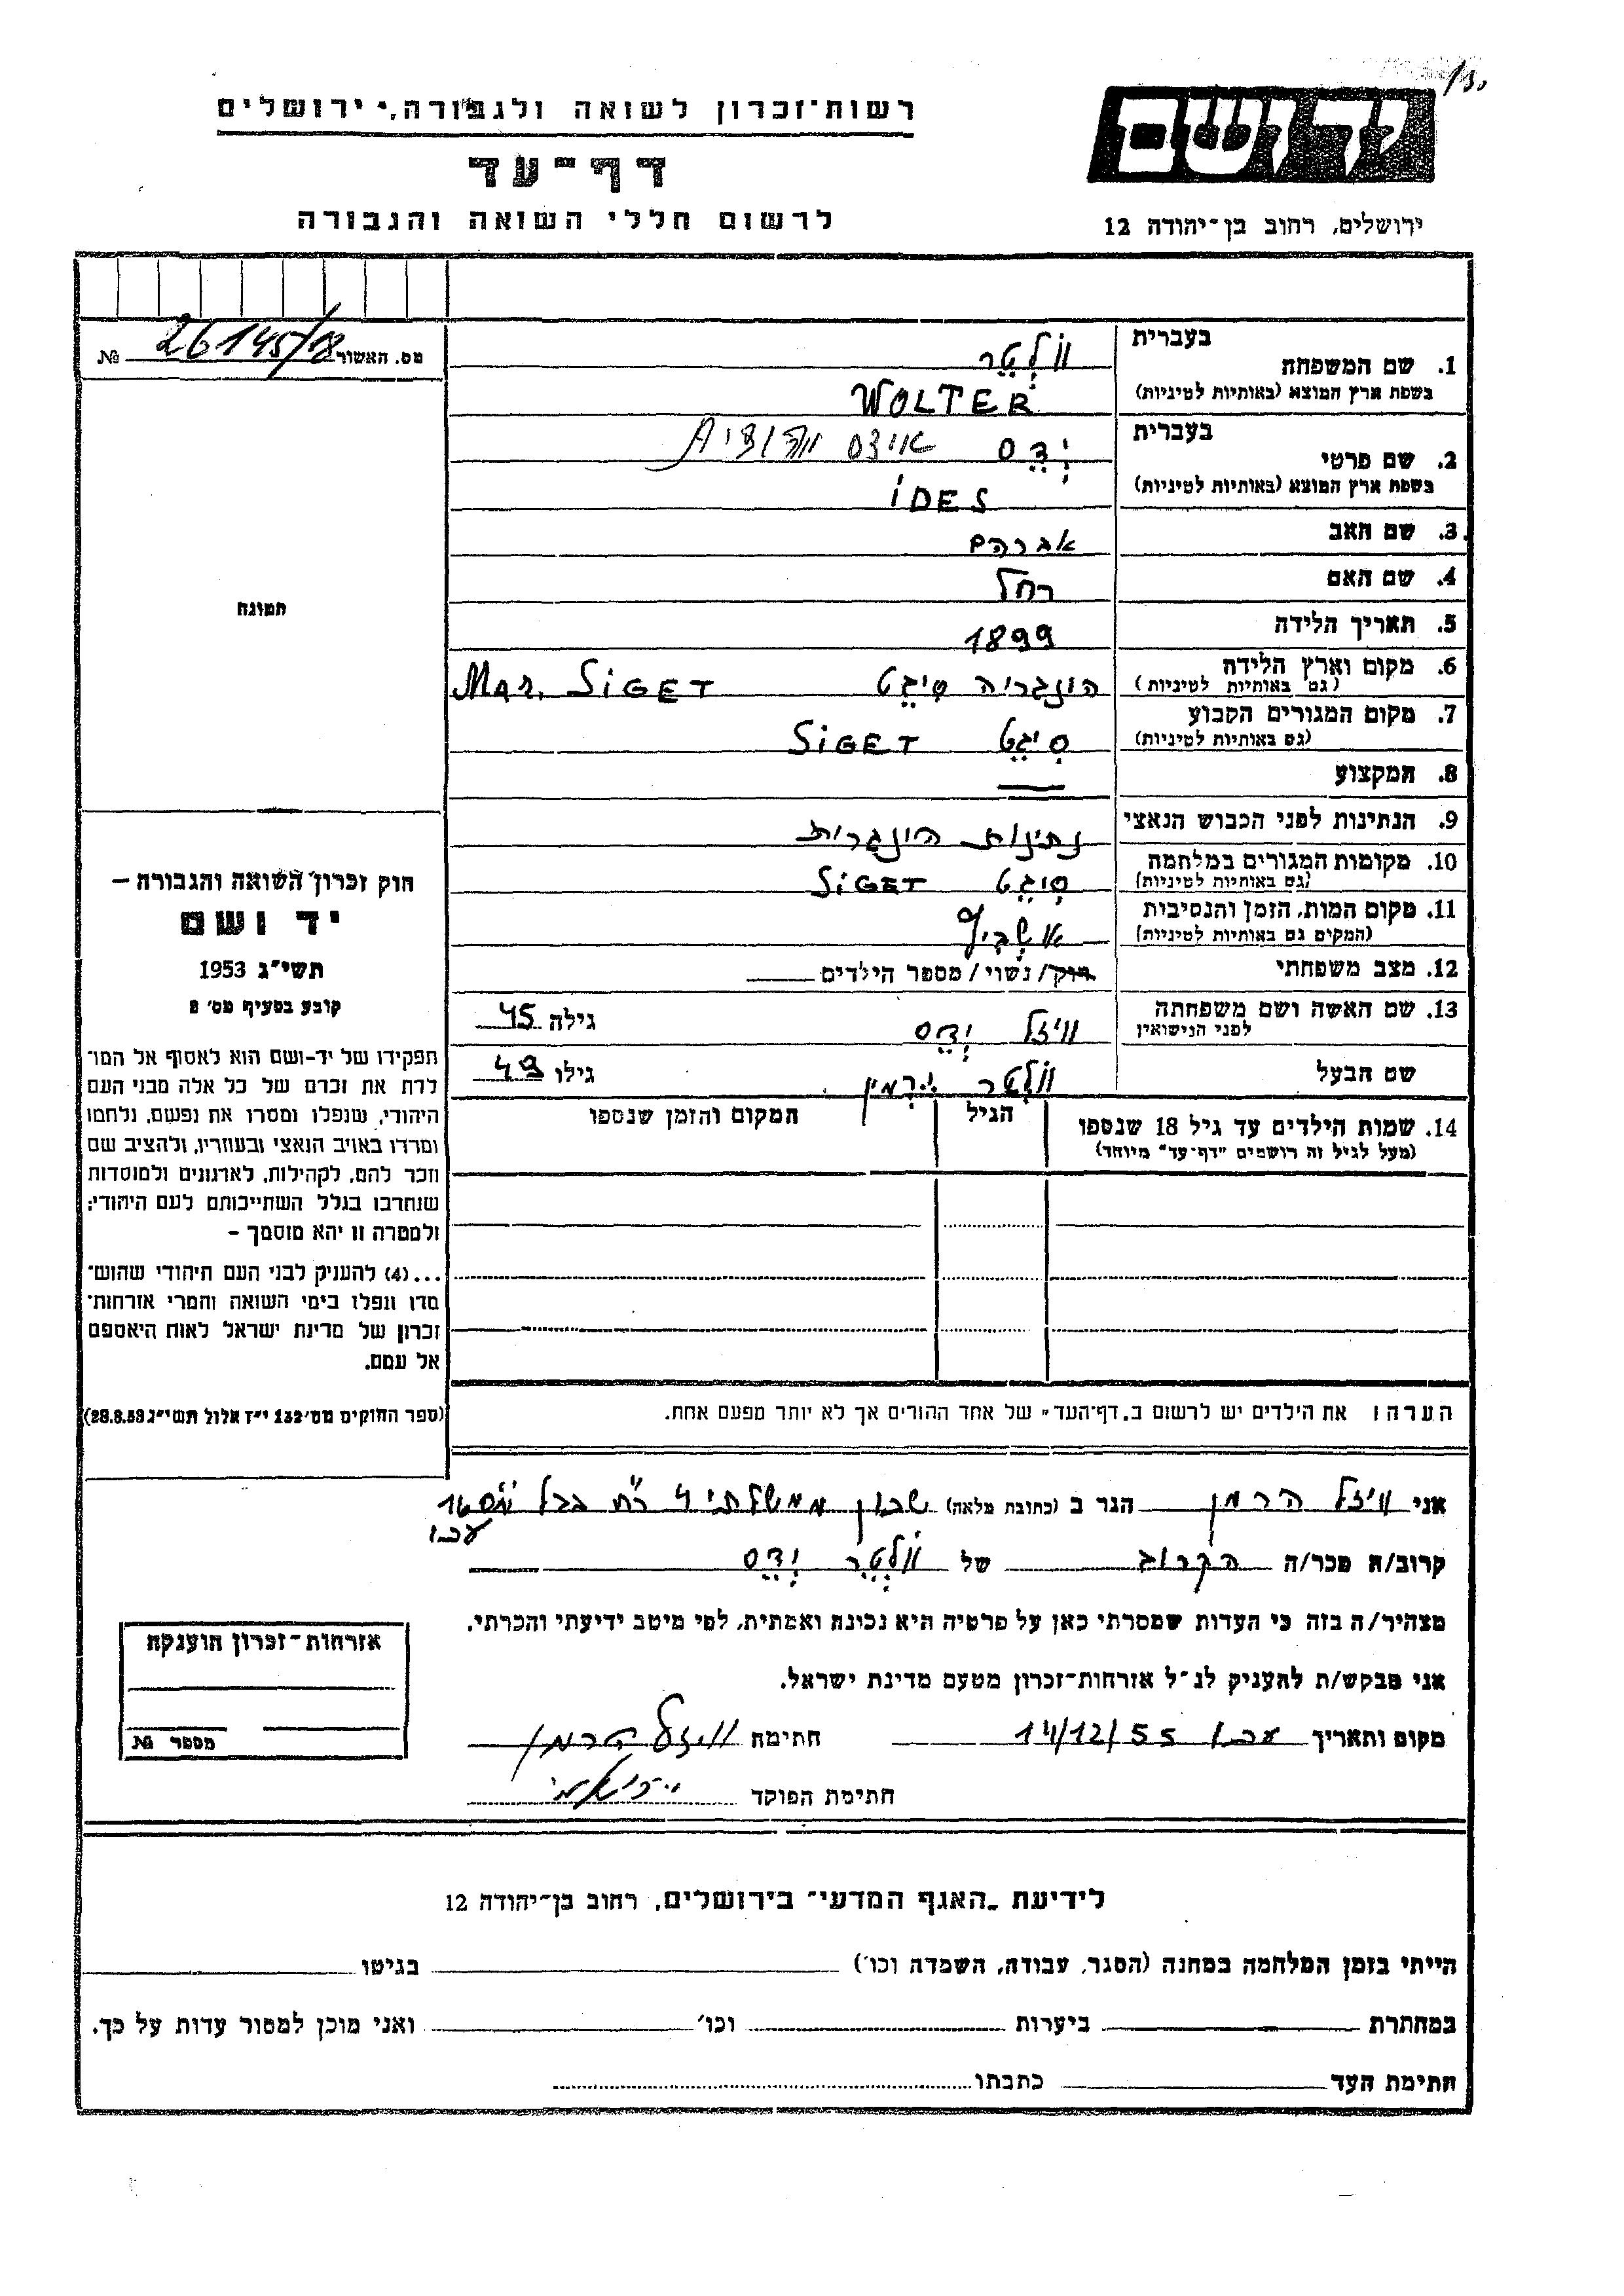 רשות־זכרון לשואה ולגבורה, ירושלים
דף־עד
לרשום חללי השואה והגבורה
יד ושם
ירושלים, רחוב בן־יהודה 12
מס. האשור 26145/18 №
תמונה
חוק זכרון השואה והגבורה —
יד ושם
תשי״ג 1953
קובע בסעיף מס׳ 2
תפקידו של יד-ושם הוא לאסוף אל המו־
לדת את זכרם של כל אלה מבני העם
היהודי, שנפלו ומסרו את נפשם, נלחמו
ומרדו באויב הנאצי ובעוזריו, ולהציב שם
וזכר להם, לקהילות, לארגונים ולמוסדות
שנחרבו בגלל השתייכותם לעם היהודי;
ולמטרה זו יהא מוסמך —
...(4) להעניק לבני העם היהודי שהוש־
מדו ונפלו בימי השואה והמרי אזרחות־
זכרון של מדינת ישראל לאות היאספם
אל עמם.
(ספר החוקים מס׳ 132 י״ז אלול תשי״ג 28.8.53)
בעברית
1. שם המשפחה וֹלְטֶר
בשפת ארץ המוצא (באותיות לטיניות) WOLTER
בעברית
2. שם פרטי יְדֶס
בשפת ארץ המוצא (באותיות לטיניות) IDES
3. שם האב אברהם
4. שם האם רחל
5. תאריך הלידה 1899
6. מקום וארץ הלידה הונגריה סיגט Mar. SiGET
(גם באותיות לטיניות)
7. מקום המגורים הקבוע סיגט SiGET
(גם באותיות לטיניות)
8. המקצוע —
9. הנתינות לפני הכבוש הנאצי נתינות הונגרית
10. מקומות המגורים במלחמה סיגט SiGET
(גם באותיות לטיניות)
11. מקום המות, הזמן והנסיבות אשביץ
(המקום גם באותיות לטיניות)
12. מצב משפחתי רווק/נשוי/מספר הילדים
13. שם האשה ושם משפחתה ויזל יְדֶס גילה 45
לפני הנישואין
שם הבעל וֹלְטֶר ירמין גילו 49
14. שמות הילדים עד גיל 18 שנספו הגיל המקום והזמן שנספו
(מעל לגיל זה רושמים "דף-עד" מיוחד)
הערה: את הילדים יש לרשום ב„דף־העד״ של אחד ההורים אך לא יותר מפעם אחת.
אני ויזל הרמן הגר ב (כתובת מלאה) שכון ממשלתי 4 16
עכו
קרוב/ה מכר/ה הקרוב של וֹלְטֶר יְדֶס
מצהיר/ה בזה כי העדות שמסרתי כאן על פרטיה היא נכונה ואמתית, לפי מיטב ידיעתי והכרתי.
אני מבקש/ת להעניק לנ״ל אזרחות־זכרון מטעם מדינת ישראל.
מקום ותאריך עכו 14/12/55 חתימה ויזל הרמן
חתימת הפוקד
אזרחות־זכרון הוענקה
מספר №
לידיעת „האגף המדעי״ בירושלים, רחוב בן־יהודה 12
הייתי בזמן המלחמה במחנה (הסגר, עבודה, השמדה וכו׳) בגיטו
במחתרת ביערות וכו׳ ואני מוכן למסור עדות על כך.
חתימת העד כתבתו